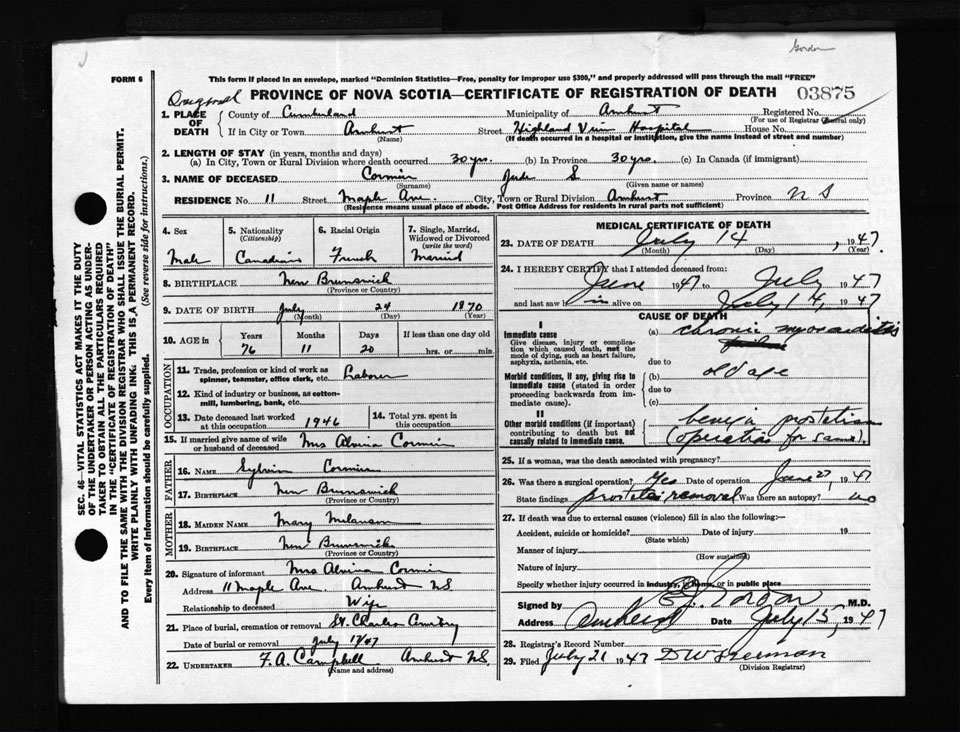 Gordon
FORM 6
This form if placed in an envelope, marked "Dominion Statistics—Free, penalty for improper use $300," and properly addressed will pass through the mail "FREE"
PROVINCE OF NOVA SCOTIA—CERTIFICATE OF REGISTRATION OF DEATH 03875
1. PLACE OF DEATH
County of Cumberland Municipality of Amherst Registered No.
(For use of Registrar General only)
If in City or Town Amherst Street Highland View Hospital House No.
(Name) (If death occurred in a hospital or institution, give the name instead of street and number)
2. LENGTH OF STAY (in years, months and days)
(a) In City, Town or Rural Division where death occurred 30 yrs. (b) In Province 30 yrs. (c) In Canada (if immigrant)
3. NAME OF DECEASED Cormier Jude S
(Surname) (Given name or names)
RESIDENCE No. 11 Street Maple Ave. City, Town or Rural Division Amherst Province N S
(Residence means usual place of abode. Post Office Address for residents in rural parts not sufficient)
4. Sex 5. Nationality (Citizenship) 6. Racial Origin 7. Single, Married, Widowed or Divorced (write the word)
Male Canadian French Married
8. BIRTHPLACE New Brunswick
(Province or Country)
9. DATE OF BIRTH July 24 1870
(Month) (Day) (Year)
10. AGE in Years Months Days If less than one day old
76 11 20 hrs. or min.
OCCUPATION
11. Trade, profession or kind of work as spinner, teamster, office clerk, etc. Laborer
12. Kind of industry or business, as cotton-mill, lumbering, bank, etc.
13. Date deceased last worked at this occupation 1946 14. Total yrs. spent in this occupation
15. If married give name of wife or husband of deceased Mrs Alvina Cormier
FATHER
16. NAME Sylvain Cormier
17. BIRTHPLACE New Brunswick
(Province or Country)
MOTHER
18. MAIDEN NAME Mary
19. BIRTHPLACE New Brunswick
(Province or Country)
20. Signature of informant Mrs Alvina Cormier
Address 11 Maple Ave. Amherst NS
Relationship to deceased Wife
21. Place of burial, cremation or removal St. Charles Cemetery
Date of burial or removal July 17/47
22. UNDERTAKER F. A. Campbell Amherst N.S.
(Name and address)
MEDICAL CERTIFICATE OF DEATH
23. DATE OF DEATH July 14, 1947
(Month) (Day) (Year)
24. I HEREBY CERTIFY that I attended deceased from:
June 1947 to July 1947
and last saw him alive on July 14, 1947
CAUSE OF DEATH
I
Immediate cause
Give disease, injury or complication which caused death, not the mode of dying, such as heart failure, asphyxia, asthenia, etc.
(a) chronic myocarditis
due to
Morbid conditions, if any, giving rise to immediate cause (stated in order proceeding backwards from immediate cause).
(b) old age
due to
(c)
II
Other morbid conditions (if important) contributing to death but not causally related to immediate cause.
(operation for same).
25. If a woman, was the death associated with pregnancy?
26. Was there a surgical operation? Yes Date of operation June 27, 1947
State findings removal Was there an autopsy? no
27. If death was due to external causes (violence) fill in also the following:—
Accident, suicide or homicide? Date of injury 19
(State which)
Manner of injury
(How sustained)
Nature of injury
Specify whether injury occurred in industry, in home, or in public place
Signed by M.D.
Address Amherst Date July 15, 1947
28. Registrar's Record Number
29. Filed July 21 1947
(Division Registrar)
SEC. 46—VITAL STATISTICS ACT MAKES IT THE DUTY
OF THE UNDERTAKER OR PERSON ACTING AS UNDER-
TAKER TO OBTAIN ALL THE PARTICULARS REQUIRED
IN THE "CERTIFICATE OF REGISTRATION OF DEATH"
AND TO FILE THE SAME WITH THE DIVISION REGISTRAR WHO SHALL ISSUE THE BURIAL PERMIT.
WRITE PLAINLY WITH UNFADING INK. THIS IS A PERMANENT RECORD.
Every item of Information should be carefully supplied. (See reverse side for instructions.)